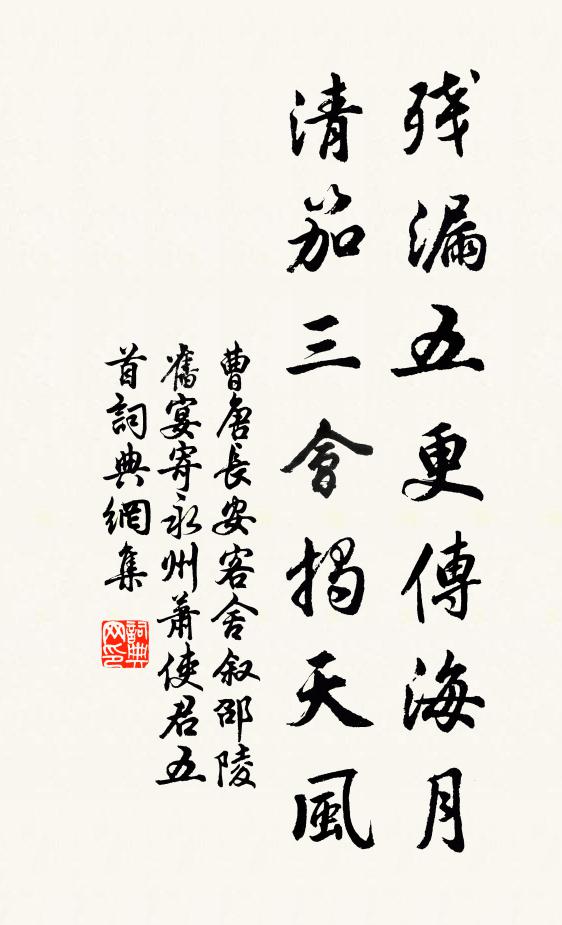 残漏五更傳海月
清笳三會揭天風
曹唐長安客舍叙邵陵
舊宴寄永州蕭使君五
首詞典網集
詞典
网印